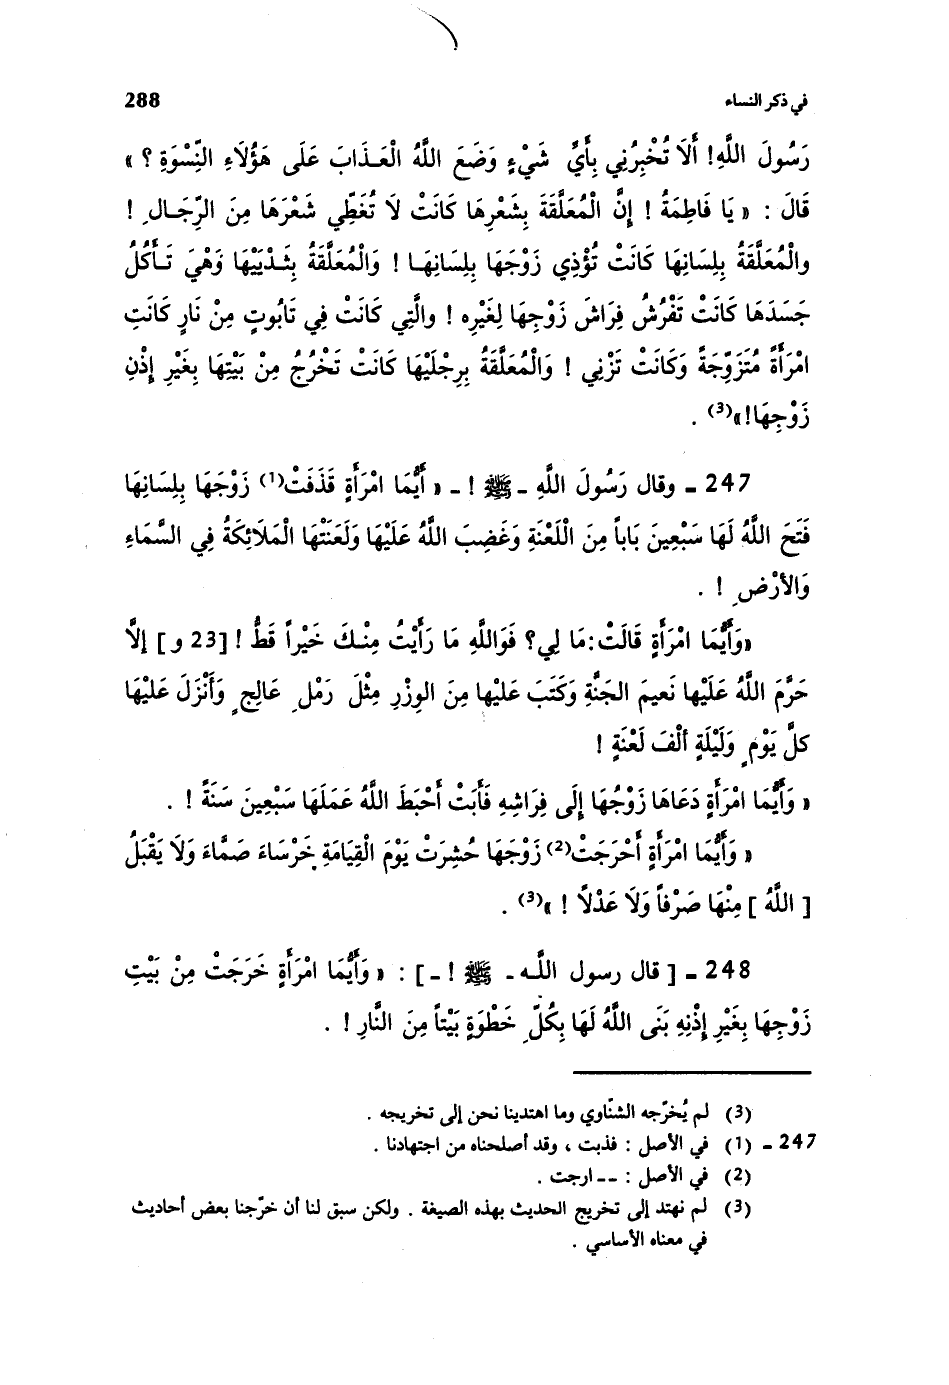 في ذكر النساء 288
رَسُولَ اللَّهِ! أَلَا تُخْبِرُنِي بِأَيِّ شَيْءٍ وَضَعَ اللَّهُ الْعَذَابَ عَلَى هَؤُلَاءِ النِّسْوَةِ ؟ »
قَالَ : « يَا فَاطِمَةُ ! إِنَّ الْمُعَلَّقَةَ بِشَعْرِهَا كَانَتْ لَا تُغَطِّي شَعْرَهَا مِنَ الرِّجَالِ !
والْمُعَلَّقَةُ بِلِسَانِهَا كَانَتْ تُؤْذِي زَوْجَهَا بِلِسَانِهَا ! وَالْمُعَلَّقَةُ بِثَدْيَيْهَا وَهْيَ تَأْكُلُ
جَسَدَهَا كَانَتْ تَفْرُشُ فِرَاشَ زَوْجِهَا لِغَيْرِهِ ! والَّتِي كَانَتْ فِي تَابُوتٍ مِنْ نَارٍ كَانَتِ
امْرَأَةً مُتَزَوِّجَةً وَكَانَتْ تَزْنِي ! وَالْمُعَلَّقَةُ بِرِجْلَيْهَا كَانَتْ تَخْرُجُ مِنْ بَيْتِهَا بِغَيْرِ إِذْنِ
زَوْجِهَا!»(3) .
247 ـ وقال رَسُولَ اللَّهِ ـ ﷺ ! ـ « أَيُّمَا امْرَأَةٍ قَذَفَتْ(1) زَوْجَهَا بِلِسَانِهَا
فَتَحَ اللَّهُ لَهَا سَبْعِينَ بَاباً مِنَ اللَّعْنَةِ وَغَضِبَ اللَّهُ عَلَيْهَا وَلَعَنَتْهَا الْمَلَائِكَةُ فِي السَّمَاءِ
وَالأَرْضِ ! .
«وَأَيُّمَا امْرَأَةٍ قَالَتْ: مَا لِي؟ فَوَاللَّهِ مَا رَأَيْتُ مِنْكَ خَيْراً قَطُّ ! [23 و] إلَّا
حَرَّمَ اللَّهُ عَلَيْها نَعيمَ الجَنَّةِ وَكَتَبَ عَليْها مِنَ الوِزْرِ مِثْلَ رَمْلِ عَالِجٍ وَأَنْزَلَ عَلَيْهَا
كلَّ يَوْمٍ وَلَيْلَةٍ ألْفَ لَعْنَةٍ !
« وَأَيُّمَا امْرَأَةٍ دَعَاهَا زَوْجُهَا إِلَى فِرَاشِهِ فَأَبَتْ أَحْبَطَ اللَّهُ عَمَلَهَا سَبْعِينَ سَنَةً ! .
« وَأَيُّمَا امْرَأَةٍ أَحْرَجَتْ(2) زَوْجَهَا حُشِرَتْ يَوْمَ الْقِيَامَةِ خَرْسَاءَ صَمَّاءَ وَلَا يَقْبَلُ
[ اللَّهُ ] مِنْهَا صَرْفاً وَلَا عَدْلاً ! »(3) .
248 ـ [ قال رسول اللَّه ـ ﷺ ! ـ ] : « وَأَيُّمَا امْرَأَةٍ خَرَجَتْ مِنْ بَيْتِ
زَوْجِهَا بِغَيْرِ إِذْنِهِ بَنَى اللَّهُ لَهَا بِكُلِّ خَطْوَةٍ بَيْتاً مِنَ النَّارِ ! .
(3) لم يُخرّجه الشنّاوي وما اهتدينا نحن إلى تخريجه .
247 ـ (1) في الأصل : فذبت ، وقد أصلحناه من اجتهادنا .
(2) في الأصل : ــ ارجت .
(3) لم نهتد إلى تخريج الحديث بهذه الصيغة . ولكن سبق لنا أن خرّجنا بعض أحاديث
في معناه الأساسي .